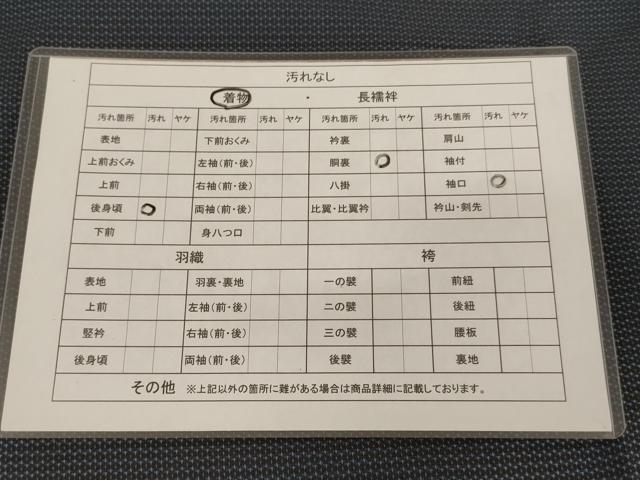 汚れなし
着物 ・ 長襦袢
汚れ箇所 汚れ ヤケ 汚れ箇所 汚れ ヤケ 汚れ箇所 汚れ ヤケ 汚れ箇所 汚れ ヤケ
表地 下前おくみ 衿裏 肩山
上前おくみ 左袖(前・後) 胴裏 ○ 袖付
上前 右袖(前・後) 八掛 袖口 ○
後身頃 ○ 両袖(前・後) 比翼・比翼衿 衿山・剣先
下前 身八つ口
羽織 袴
表地 羽裏・裏地 一の襞 前紐
上前 左袖(前・後) 二の襞 後紐
竪衿 右袖(前・後) 三の襞 腰板
後身頃 両袖(前・後) 後襞 裏地
その他 ※上記以外の箇所に難がある場合は商品詳細に記載しております。